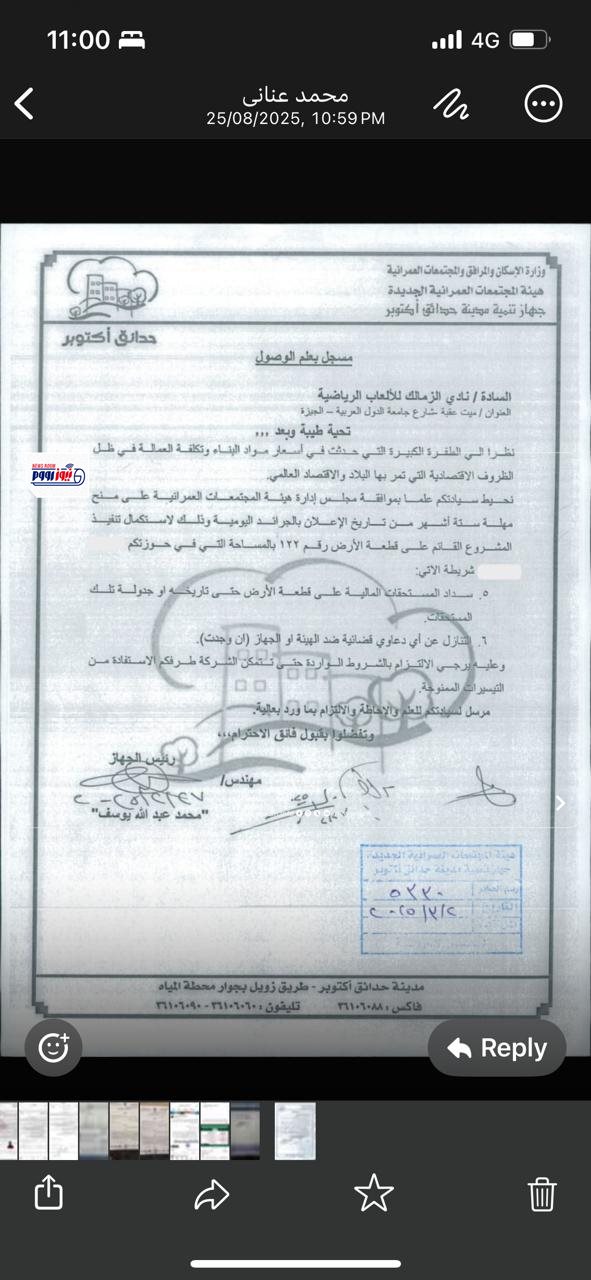 11:00
4G
محمد عنانى
25/08/2025, 10:59 PM
وزارة الإسكان والمرافق والمجتمعات العمرانية
هيئة المجتمعات العمرانية الجديدة
جهاز تنمية مدينة حدائق أكتوبر
حدائق أكتوبر
مسجل بعلم الوصول
السادة / نادي الزمالك للألعاب الرياضية
العنوان / ميت عقبة -شارع جامعة الدول العربية – الجيزة
تحية طيبة وبعد ,,,
نظرا الي الطفرة الكبيرة التي حدثت في أسعار مواد البناء وتكلفة العمالة في ظل
الظروف الاقتصادية التي تمر بها البلاد والاقتصاد العالمي.
NEWS ROOM
نيوز رووم
نحيط سيادتكم علما بموافقة مجلس إدارة هيئة المجتمعات العمرانية على منح
مهلة ستة أشهر من تاريخ الإعلان بالجرائد اليومية وذلك لاستكمال تنفيذ
المشروع القائم على قطعة الأرض رقم ١٢٢ بالمساحة التي في حوزتكم
شريطة الاتي:
٥. سداد المستحقات المالية على قطعة الأرض حتى تاريخه او جدولة تلك
المستحقات.
٦. التنازل عن أي دعاوي قضائية ضد الهيئة او الجهاز (ان وجدت).
وعليه يرجي الالتزام بالشروط الواردة حتى تتمكن الشركة طرفكم الاستفادة من
التيسيرات الممنوحة.
مرسل لسيادتكم للعلم والإحاطة والالتزام بما ورد بعالية.
وتفضلوا بقبول فائق الاحترام,,,
رئيس الجهاز
مهندس/
"محمد عبد الله يوسف"
هيئة المجتمعات العمرانية الجديدة
جهاز تنمية مدينة حدائق أكتوبر
٥٢٢٠
مدينة حدائق أكتوبر - طريق زويل بجوار محطة المياه
فاكس : ٣٦١٠٦٠٨٨ تليفون : ٣٦١٠٦٠٦٠ - ٣٦١٠٦٠٩٠
Reply